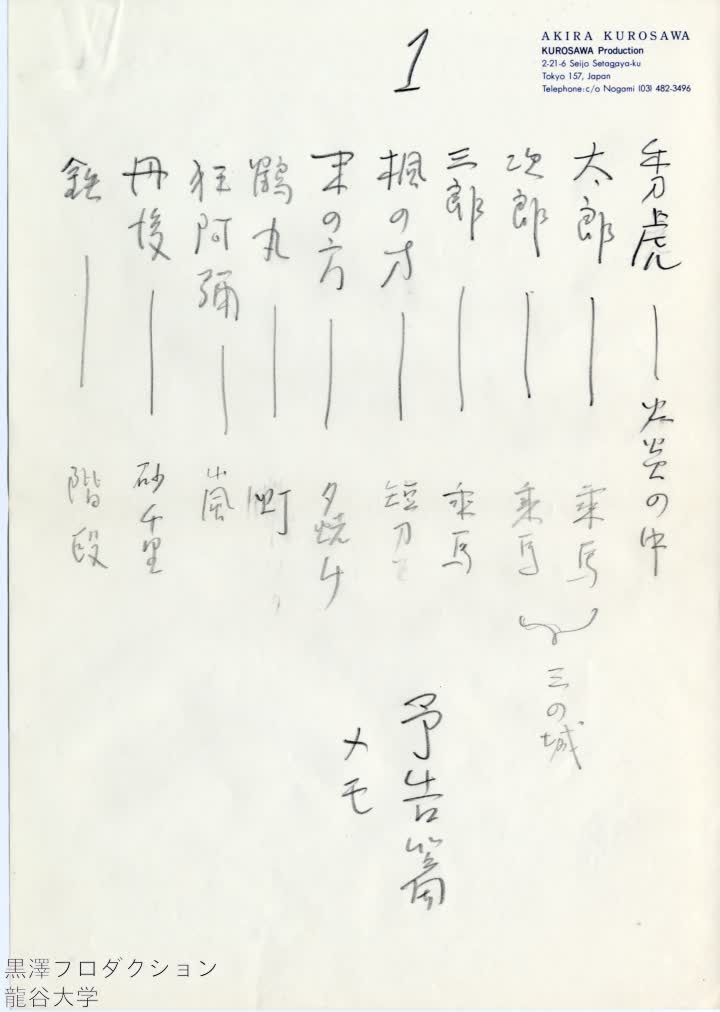 AKIRA KUROSAWA
KUROSAWA Production
2-21-6 Seijo Setagaya-ku
Tokyo 157, Japan
Telephone: c/o Nogami (03) 482-3496
1
秀虎 ― 火炎の中
太郎 ― 乗馬
次郎 ― 乗馬
三の城
三郎 ― 乗馬
楓の方 ― 短刀
末の方 ― 夕焼け
鶴丸 ―
狂阿弥 ― 嵐
丹後 ― 砂千里
鉄 ― 階段
予告篇
メモ
黒澤プロダクション
龍谷大学